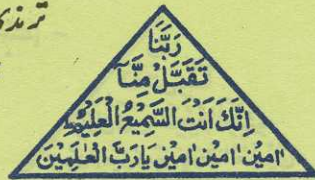 ترمذی
رَبَّنَا
تَقَبَّلْ مِنَّآ
اِنَّكَ اَنْتَ السَّمِيْعُ الْعَلِيْمُ
اٰمِيْن اٰمِيْن اٰمِيْن يَا رَبَّ الْعٰلَمِيْنَ